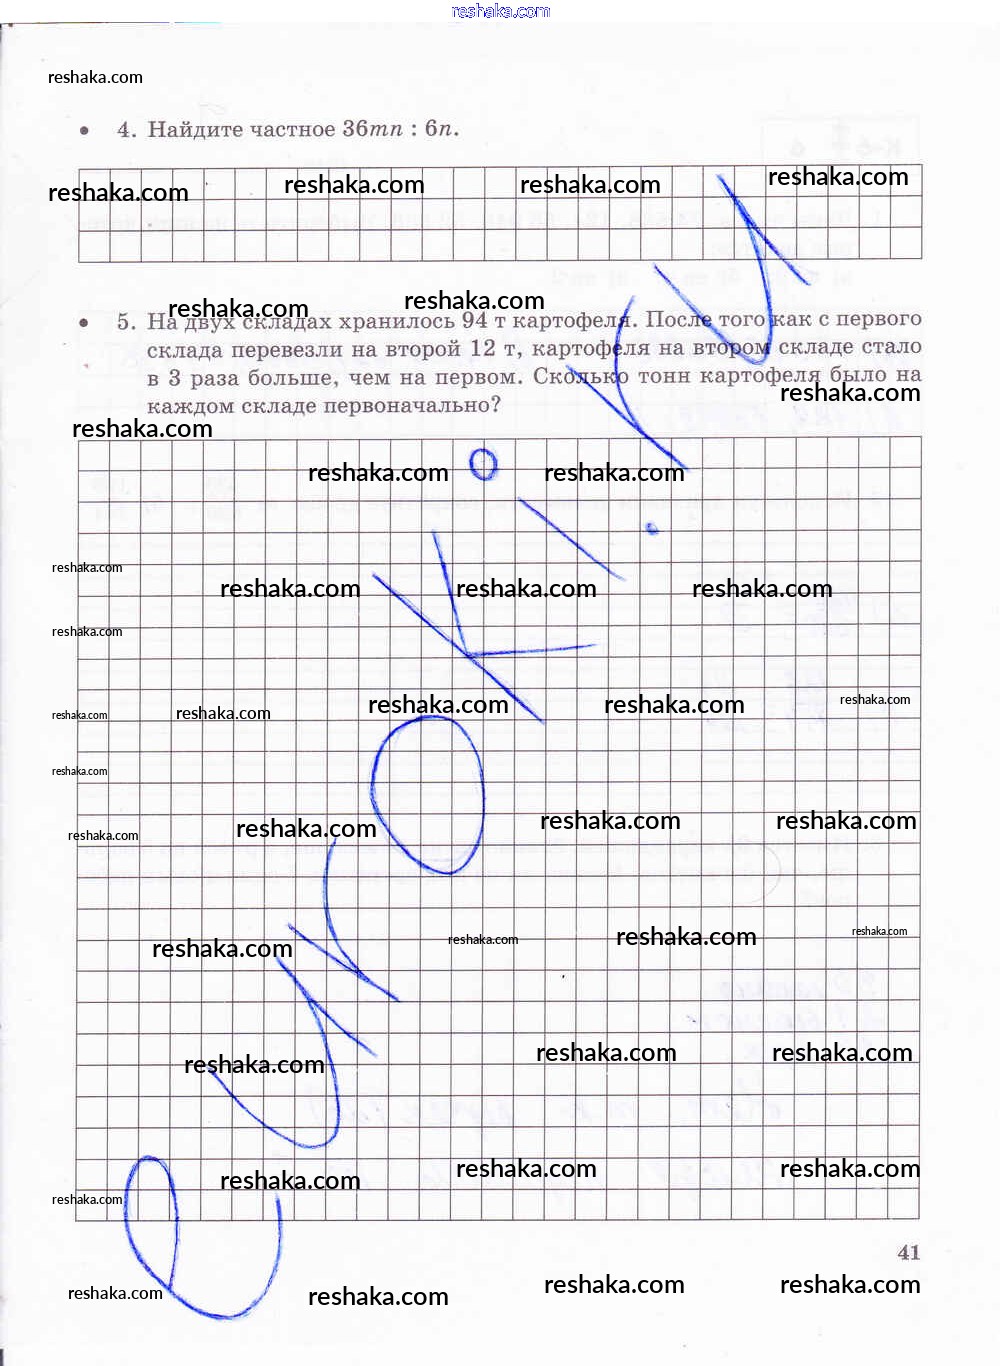 reshaka.com
reshaka.com
4. Найдите частное 36mn : 6n.
reshaka.com reshaka.com reshaka.com reshaka.com
reshaka.com reshaka.com
5. На двух складах хранилось 94 т картофеля. После того как с первого
склада перевезли на второй 12 т, картофеля на втором складе стало
в 3 раза больше, чем на первом. Сколько тонн картофеля было на
каждом складе первоначально?
reshaka.com
reshaka.com
reshaka.com reshaka.com
reshaka.com
reshaka.com reshaka.com reshaka.com
reshaka.com
reshaka.com reshaka.com reshaka.com reshaka.com reshaka.com
reshaka.com
reshaka.com reshaka.com reshaka.com reshaka.com
reshaka.com reshaka.com reshaka.com reshaka.com
reshaka.com reshaka.com reshaka.com
reshaka.com reshaka.com reshaka.com
reshaka.com
41
reshaka.com reshaka.com reshaka.com reshaka.com